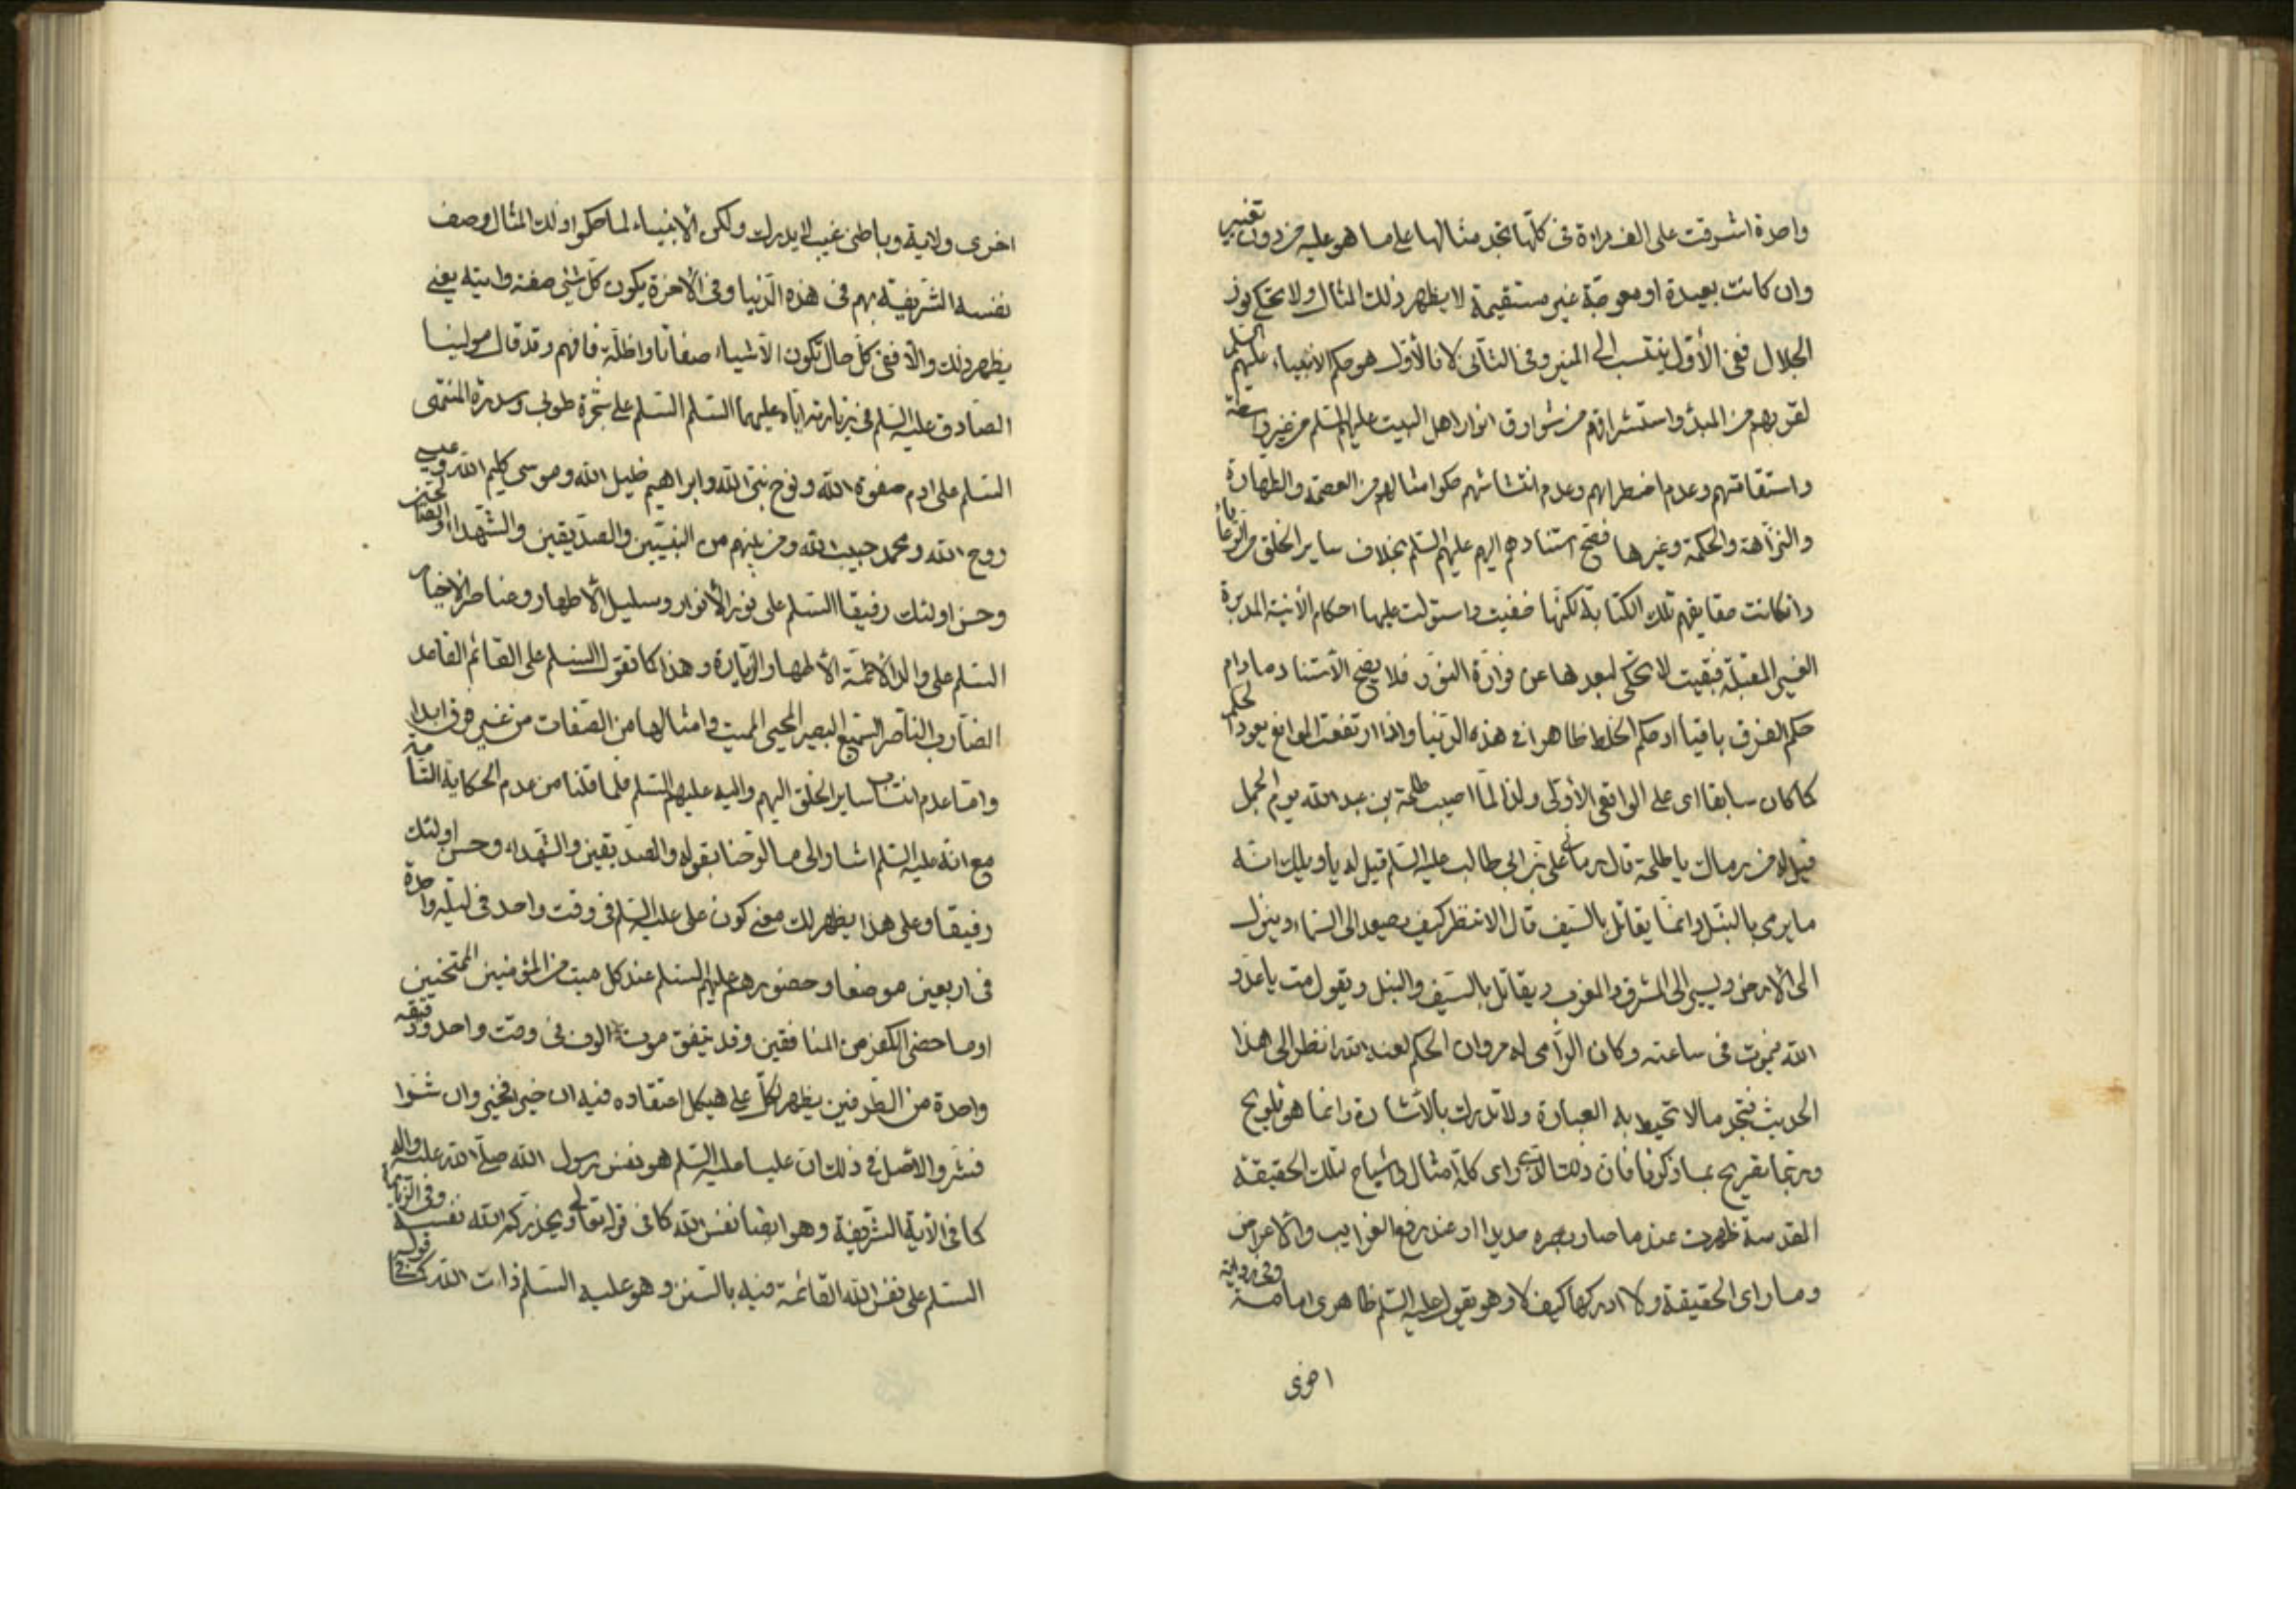 واحدة اشرقت على الف مراة فى كلها تجد مثالها على ما هو عليه من دون تغيير
وان كانت بعيدة او معوجة غير مستقيمة لا يظهر ذلك المثال ولا يحكى نور
الجلال ففى الأول ينتسب الى المنير وفى الثانى لا فالأول هو حكم الانبياء عليهم السلم
لقوربهم من المبدء واستشراقهم من شوارق انوار اهل البيت عليهم السلم من غير واسطة
واستقامتهم وعدم اضطرابهم وعدم انتشاشهم حكوا مثالهم من العصمة والطهارة
والنزاهة والحكمة وغيرها فصح استنادهم اليهم عليهم السلم بخلاف ساير الخلق من الرعايا
وانكانت حقايقهم تلك الكتابة لكنها خفيت واستولت عليها احكام الأنية المدبرة
الغير المقبلة فبقيت لا تحكى لبعدها عن فوارة النور فلا يصح الاستناد مادام
حكم الفرق باقيا اد حكم الخلط ظاهرا فى هذه الدنيا واذا ارتفعت الموانع يعود الحكم
كما كان سابقا اى على الواقعى الأولى ولذا لما اصيب طلحة بن عبد الله يوم الجمل
قيل له من رماك يا طلحة قال رمانى على بن ابى طالب عليه السلم قيل له يا ويلك انه
ما يرمى بالنبل وانما يقاتل بالسيف قال الا تنظر كيف يصعد الى السماء وينزل
الى الأرض ويسير الى المشرق والمغرب ويقاتل بالسيف والنبل ويقول مت يا عدو
الله فيموت فى ساعته وكان الرامى له مروان الحكم لعنه الله انظر الى هذا
الحديث فتجد ما لا تحيط به العبارة ولا تدرك بالأشارة وانما هو تلويح
وربما تصريح بما ذكرنا فان ذلك الذى راى كله امثال واشباح لتلك الحقيقة
المقدسة ظهرت عند ما صار بصره حديدا اد عند رفع الغرايب والاعراض
وما راى الحقيقة ولا ادركها كيف لا وهو يقول عليه السلم ظاهرى امامة وفى رواية
اخرى
اخرى ولاية وباطنى غيب لا يدرك ولكن الأنبياء لما حكوا ذلك المثال وصف
نفسه الشريفة بهم فى هذه الدنيا وفى الأخرة يكون كل شئ صفته وايته يعنى
يظهر ذلك والا ففى كل حال تكون الأشياء صفاتا واظلة فافهم وقد قال مولينا
الصادق عليه السلم فى زيارته اباه عليهما السلم السلم على شجرة طوبى وسدرة المنتهى
السلم على ادم صفوة الله ونوح نبى الله وابراهيم خليل الله وموسى كليم الله وعيسى
روح الله ومحمد حبيب الله ومن بينهم من النبيين والصديقين والشهداء والصالحين
وحسن اولئك رفيقا السلم على نور الأنوار وسليل الأطهار وعناصر الأخيار
السلم على والد الأئمة الأطهار الزيارة وهذا كما تقول السلم على القائم القاعد
الضارب الناصر السميع البصير المحيى المميت وامثالها من الصفات من غير فرق ابدا
واما عدم انتساب ساير الخلق اليهم واليه عليهم السلم فلما قلنا من عدم الحكاية التامة
مع انه عليه السلم اشار الى ما لوحنا بقوله والصديقين والشهداء وحسن اولئك
رفيقا وعلى هذا يظهر لك معنى كون على عليه السلم فى وقت واحد فى ليلة واحدة
فى اربعين موضعا وحضورهم عليهم السلم عند كل ميت من المؤمنين الممتحنين
او ما حضى الكفر من المنافقين وقد يتفق موت الوف فى وقت واحد ودقيقة
واحدة من الطرفين يظهر لكل على هيكل اعتقاده فيه ان خيرا فخير وان شرا
فشر والأصل فى ذلك ان عليا عليه السلم هو نفس رسول الله صلى الله عليه واله
كما فى الأية الشريفة وهو ايضا نفس الله كما فى قوله تعالى ويحذركم الله نفسه وفى الزيارة
السلم على نفس الله القائمة فيه بالسنن وهو عليه السلم ذات الله كما فى قوله